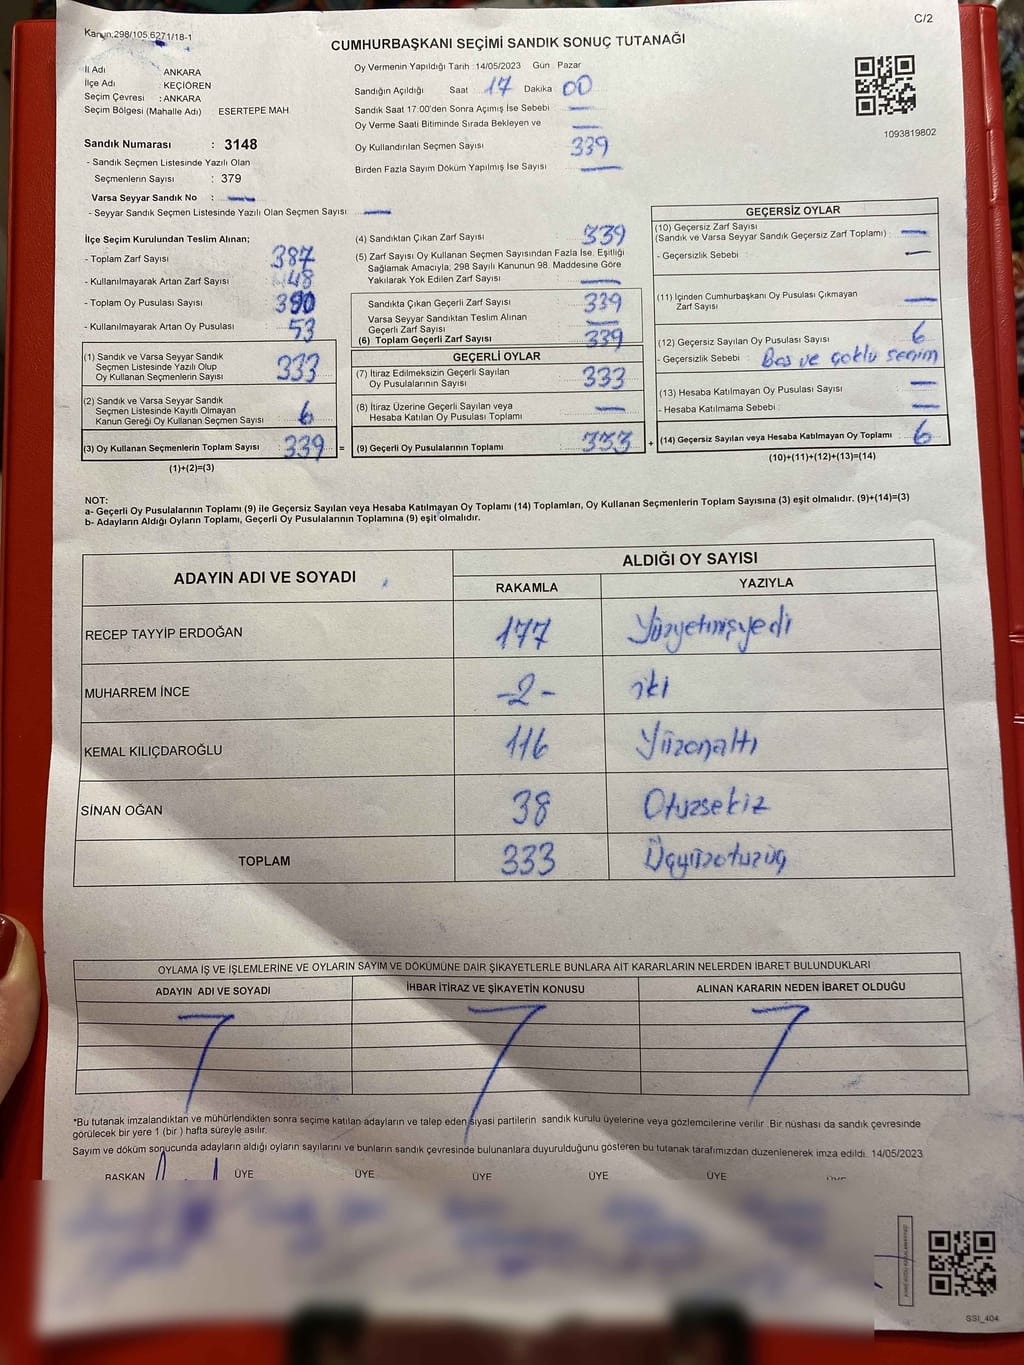 Kanun,298/105,6271/18-1
C/2
CUMHURBAŞKANI SEÇİMİ SANDIK SONUÇ TUTANAĞI
İl Adı ANKARA
İlçe Adı : KEÇİÖREN
Seçim Çevresi : ANKARA
Seçim Bölgesi (Mahalle Adı) ESERTEPE MAH
Sandık Numarası : 3148
- Sandık Seçmen Listesinde Yazılı Olan
Seçmenlerin Sayısı : 379
Varsa Seyyar Sandık No : —
- Seyyar Sandık Seçmen Listesinde Yazılı Olan Seçmen Sayısı —
Oy Vermenin Yapıldığı Tarih : 14/05/2023 Gün : Pazar
Sandığın Açıldığı Saat 17 Dakika 00
Sandık Saat 17:00'den Sonra Açımış İse Sebebi —
Oy Verme Saati Bitiminde Sırada Bekleyen ve —
Oy Kullandırılan Seçmen Sayısı 339
Birden Fazla Sayım Döküm Yapılmış İse Sayısı —
1093819802
İlçe Seçim Kurulundan Teslim Alınan;
- Toplam Zarf Sayısı 387
- Kullanılmayarak Artan Zarf Sayısı 48
- Toplam Oy Pusulası Sayısı
- Kullanılmayarak Artan Oy Pusulası 53
(1) Sandık ve Varsa Seyyar Sandık
Seçmen Listesinde Yazılı Olup
Oy Kullanan Seçmenlerin Sayısı 333
(2) Sandık ve Varsa Seyyar Sandık
Seçmen Listesinde Kayıtlı Olmayan
Kanun Gereği Oy Kullanan Seçmen Sayısı 6
(3) Oy Kullanan Seçmenlerin Toplam Sayısı 339 =
(1)+(2)=(3)
(4) Sandıktan Çıkan Zarf Sayısı 339
(5) Zarf Sayısı Oy Kullanan Seçmen Sayısından Fazla İse, Eşitliği
Sağlamak Amacıyla; 298 Sayılı Kanunun 98. Maddesine Göre
Yakılarak Yok Edilen Zarf Sayısı —
Sandıkta Çıkan Geçerli Zarf Sayısı 339
Varsa Seyyar Sandıktan Teslim Alınan
Geçerli Zarf Sayısı —
(6) Toplam Geçerli Zarf Sayısı 339
GEÇERLİ OYLAR
(7) İtiraz Edilmeksizin Geçerli Sayılan
Oy Pusulalarının Sayısı 333
(8) İtiraz Üzerine Geçerli Sayılan veya
Hesaba Katılan Oy Pusulası Toplamı —
(9) Geçerli Oy Pusulalarının Toplamı 333 +
GEÇERSİZ OYLAR
(10) Geçersiz Zarf Sayısı
(Sandık ve Varsa Seyyar Sandık Geçersiz Zarf Toplamı) —
- Geçersizlik Sebebi : —
(11) İçinden Cumhurbaşkanı Oy Pusulası Çıkmayan
Zarf Sayısı —
(12) Geçersiz Sayılan Oy Pusulası Sayısı 6
- Geçersizlik Sebebi : Boş ve çoklu seçim
(13) Hesaba Katılmayan Oy Pusulası Sayısı —
- Hesaba Katılmama Sebebi : —
(14) Geçersiz Sayılan veya Hesaba Katılmayan Oy Toplamı 6
(10)+(11)+(12)+(13)=(14)
NOT:
a- Geçerli Oy Pusulalarının Toplamı (9) ile Geçersiz Sayılan veya Hesaba Katılmayan Oy Toplamı (14) Toplamları, Oy Kullanan Seçmenlerin Toplam Sayısına (3) eşit olmalıdır. (9)+(14)=(3)
b- Adayların Aldığı Oyların Toplamı, Geçerli Oy Pusulalarının Toplamına (9) eşit olmalıdır.
ADAYIN ADI VE SOYADI
ALDIĞI OY SAYISI
RAKAMLA YAZIYLA
RECEP TAYYİP ERDOĞAN 177 Yüzyetmişyedi
MUHARREM İNCE -2- iki
KEMAL KILIÇDAROĞLU 116 Yüzonaltı
SİNAN OĞAN 38 Otuzsekiz
TOPLAM 333 Üçyüzotuzüç
OYLAMA İŞ VE İŞLEMLERİNE VE OYLARIN SAYIM VE DÖKÜMÜNE DAİR ŞİKAYETLERLE BUNLARA AİT KARARLARIN NELERDEN İBARET BULUNDUKLARI
ADAYIN ADI VE SOYADI İHBAR İTİRAZ VE ŞİKAYETİN KONUSU ALINAN KARARIN NEDEN İBARET OLDUĞU
*Bu tutanak imzalandıktan ve mühürlendikten sonra seçime katılan adayların ve talep eden siyasi partilerin sandık kurulu üyelerine veya gözlemcilerine verilir. Bir nüshası da sandık çevresinde
görülecek bir yere 1 (bir ) hafta süreyle asılır.
Sayım ve döküm sonucunda adayların aldığı oyların sayılarını ve bunların sandık çevresinde bulunanlara duyurulduğunu gösteren bu tutanak tarafımızdan düzenlenerek imza edildi. 14/05/2023
BAŞKAN ÜYE ÜYE ÜYE ÜYE ÜYE ÜYE
SSI_404